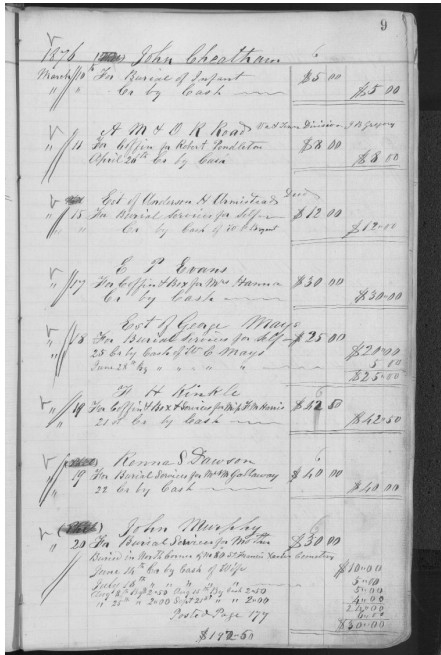 9
1876 John Cheatham
March 10th For Burial of Infant $5 00
" " Cr by Cash $5.00
A M & O R Road Division
" 11 For Coffin for Robert Pendleton $8 00
April 24th Cr by Cash $8 00
Est of Anderson H Armistead Decd
" 15 For Burial Services for Self $12 00
" " Cr by Cash of $12.00
E P Evans
" 17 For Coffin & Box for Mrs Hanna $30 00
Cr by Cash $30.00
Est of George Mays
" 18 For Burial Services for Self $25 00
25 Cr by Cash of W C Mays $20.00
June 28th by " " " 5 00
$25.00
H Kinkle
" 19 For Coffin & Box & Services for Miss Harris $42 50
21st Cr by Cash $42.50
Renna S Dawson
" 19 For Burial Services for Galloway $40 00
22 Cr by Cash $40.00
John Murphy
" 20 For Burial Services for Mother $50 00
Buried in North Corner of St Francis Xavier Cemetery
June 14th Cr by Cash of Wife $10.00
July 14th " " " " 5.00
Augt 2.50 Aug by Cash 2.50 5.00
" 25th " 2.00 Sept 21st " " 2.00 4.00
$50.00
Posted Page 177
$192.50